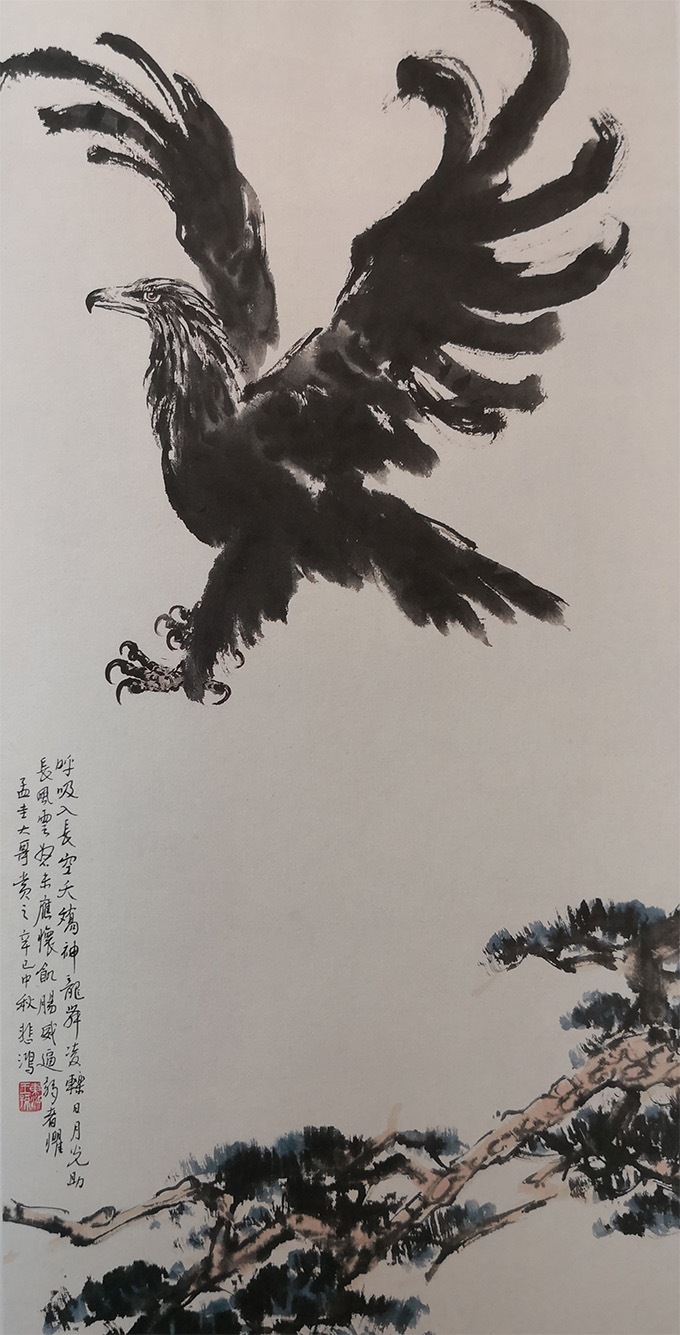 呼吸入長空夭矯神龍舞凌轢日月光助
長風雲怒未應懷飢腸威逼弱者懼
孟圭大哥賞之辛巳中秋悲鴻